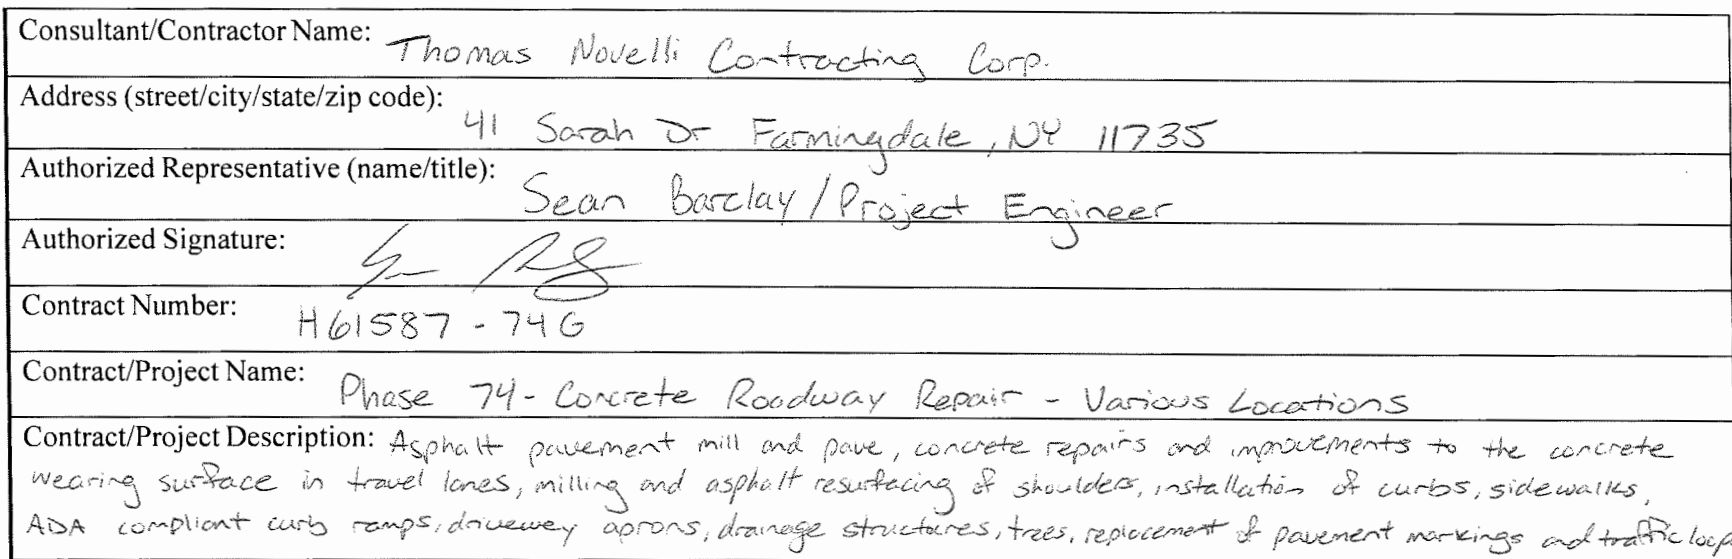 Consultant/Contractor Name: Thomas Novelli Contracting Corp.
Address (street/city/state/zip code): 41 Sarah Dr Farmingdale, NY 11735
Authorized Representative (name/title): Sean Barclay / Project Engineer
Authorized Signature:
Contract Number: H61587-74G
Contract/Project Name: Phase 74 - Concrete Roadway Repair - Various Locations
Contract/Project Description: Asphalt pavement mill and pave, concrete repairs and improvements to the concrete
wearing surface in travel lanes, milling and asphalt resurfacing of shoulders, installation of curbs, sidewalks,
ADA compliant curb ramps, driveway aprons, drainage structures, trees, replacement of pavement markings and traffic loop